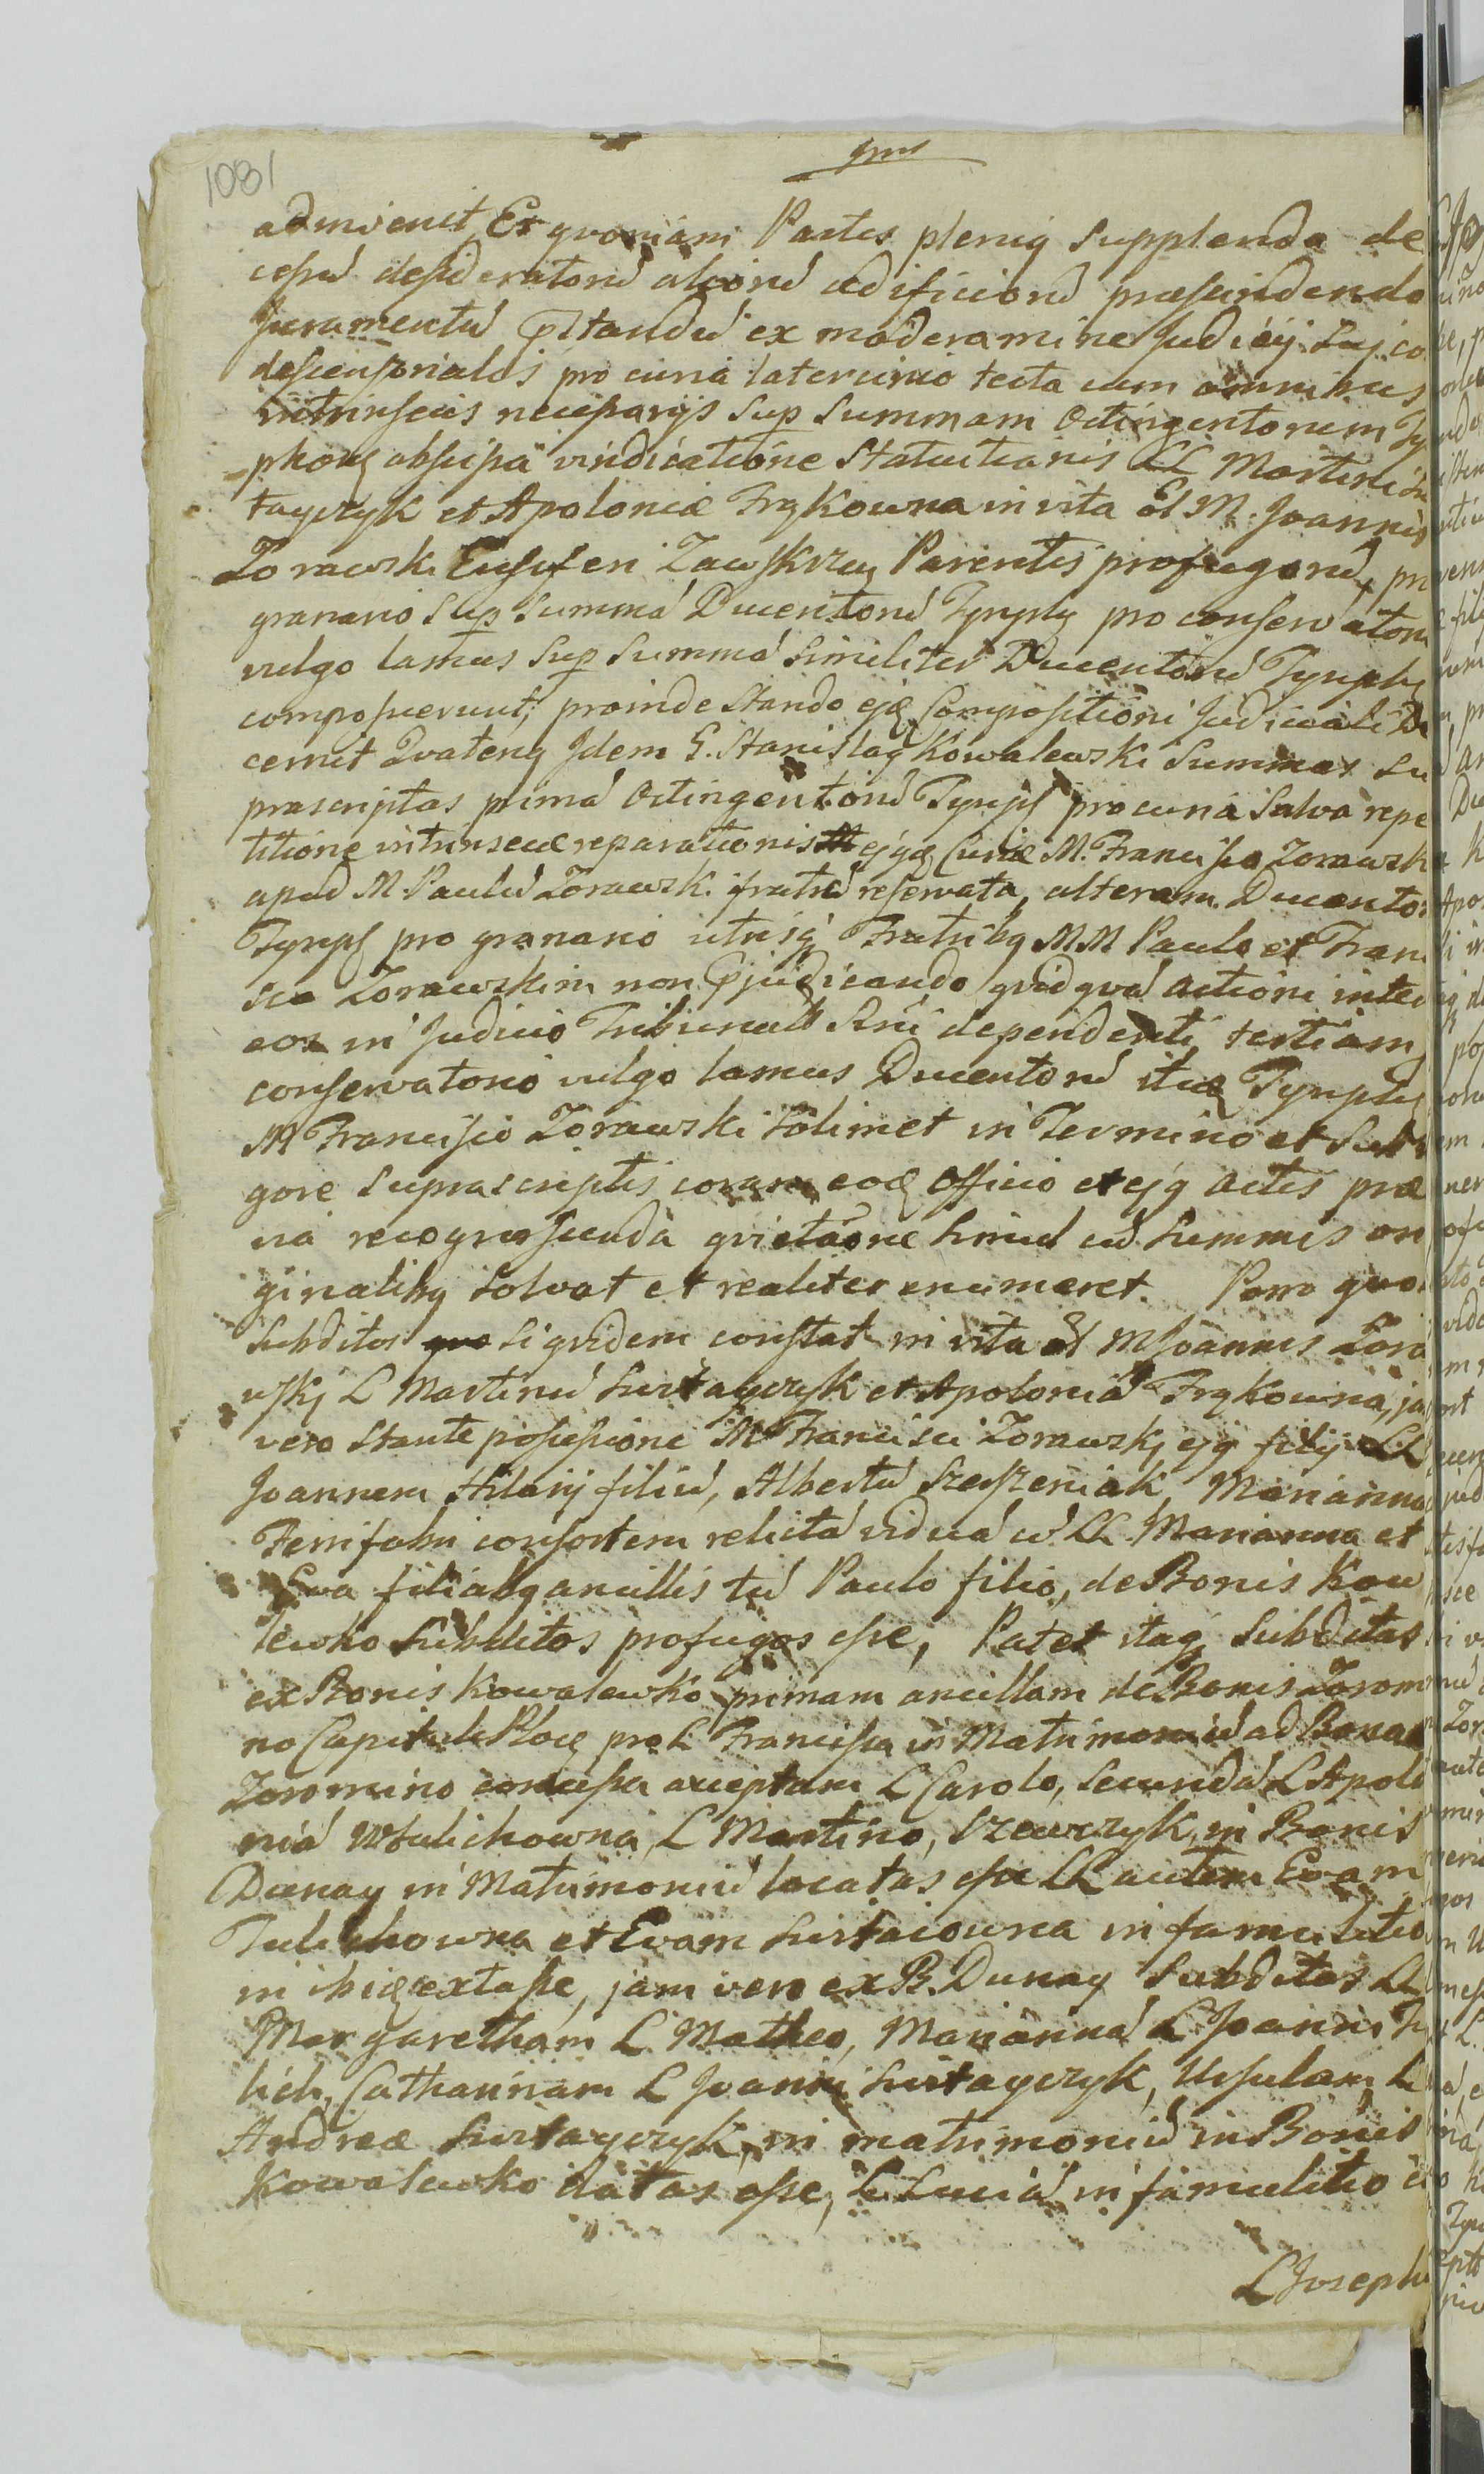 1081
adinvenit, Et qvoniam Partes plenig supplenda de
cessud desideratorud aliorud aedificiorud praescindendo
Juramentud pstandud ex moderamine Judicij Suj co
descensorialis pro curia latericio tecta cum omnibus
intrinsecis necessarijs sup summam Octingentorum Ty
phorz abscissa vindicatione Statuitionis LL Martini Su
tayczyk et Apoloniæ Frykowna in vita ol M. Joannis
Zorawski Ensiferi Zawskrzen Parentis profugorud, pro
granario sup summa Ducentorud Tynph pro conservatorio
vulgo lamus sup summa similiter Ducentorud Tynph
composuerunt, proinde stando ejæ Compositioni Judiciali De
cernit Qvateng Idem G. Stanislaq Kowalewski Summas Su
prascriptas primá Octingentorud Tynph pro curia salva repe
titione intrinsecæ reparationis ejqæ Curiæ M. Francisco Zorawski
apud M. Paulud Zorawski fratrd reservata, alteram Ducentor
Tynph pro granario utrisq Fratribq MM Paulo et Fran
cisco Zorawskim non pjudicando qvidqvá actioni inter
eos in Judicio Tribunali Rni dependenti tertiam
conservatorio vulgo lamus Ducentorud itidæ Tynph
M Francisco Zorawski solimet in Termino et sub ri
gore suprascriptis coram eoæ Officio et ejq actis præ
via recognoscenda qvietaone simul cud summis ori
ginalibq solvat et realiter enumeret. Porro qvo
subditos siqvidem constat in vita ol M Joannis Zora
wskj L Martinud Surtayczyk et Apoloniá Frykowna, ja
vero stante possessione M Francisci Zorawskj ejq filij LL
Joannem Hilarij filiud, Albertud Szeszeniak, Mariannam
Ferrifabri consortem relictá viduá cud LL Marianna et
Eva filiabq ancillis tud Paulo filio, de Bonis Kowa
lewko subditos profugos esse, Patet itaq subditas
ex Bonis Kowalewko primam ancillam de Bonis Zorom
no Capituli Ploc pro L Francisca in Matrimoniud ad Bona
Zoromino concessa acceptam L Carolo, secundá L Apolo
niá Wsulichowna L Martino, Szewczyk, in Bonis
Dunay in Matrimoniud locatas esse LL autem Evam
Tulichowna et Evam Surtaiowna in famulitio
in ibiæ extasse, jam vero ex B. Dunay subditas LL
Margaretham L Matheo, Mariannd L Joanni Tu
lich, Catharinam L Joanni Surtayczyk, Ursulam L
Andreæ Surtayczyk, in matrimoniud in Bonis
Kowalewko datas esse, L Luciá in famulitio
L Joseph